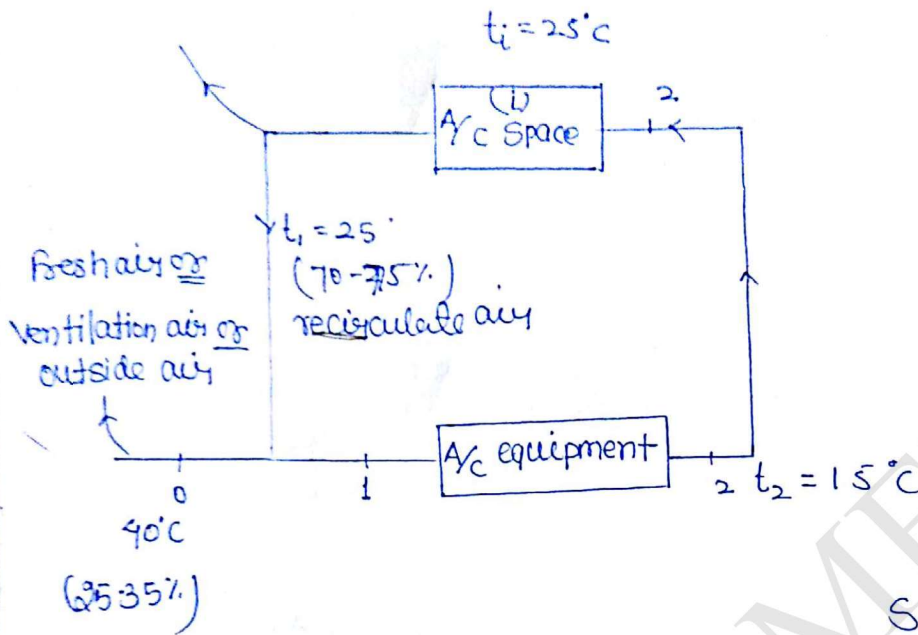 ti = 25°C
(i)
A/C Space
2
t1 = 25°
(70-75%)
recirculate air
Fresh air or
Ventilation air or
outside air
A/C equipment
0
1
2
t2 = 15°C
40°C
(25-35%)
S